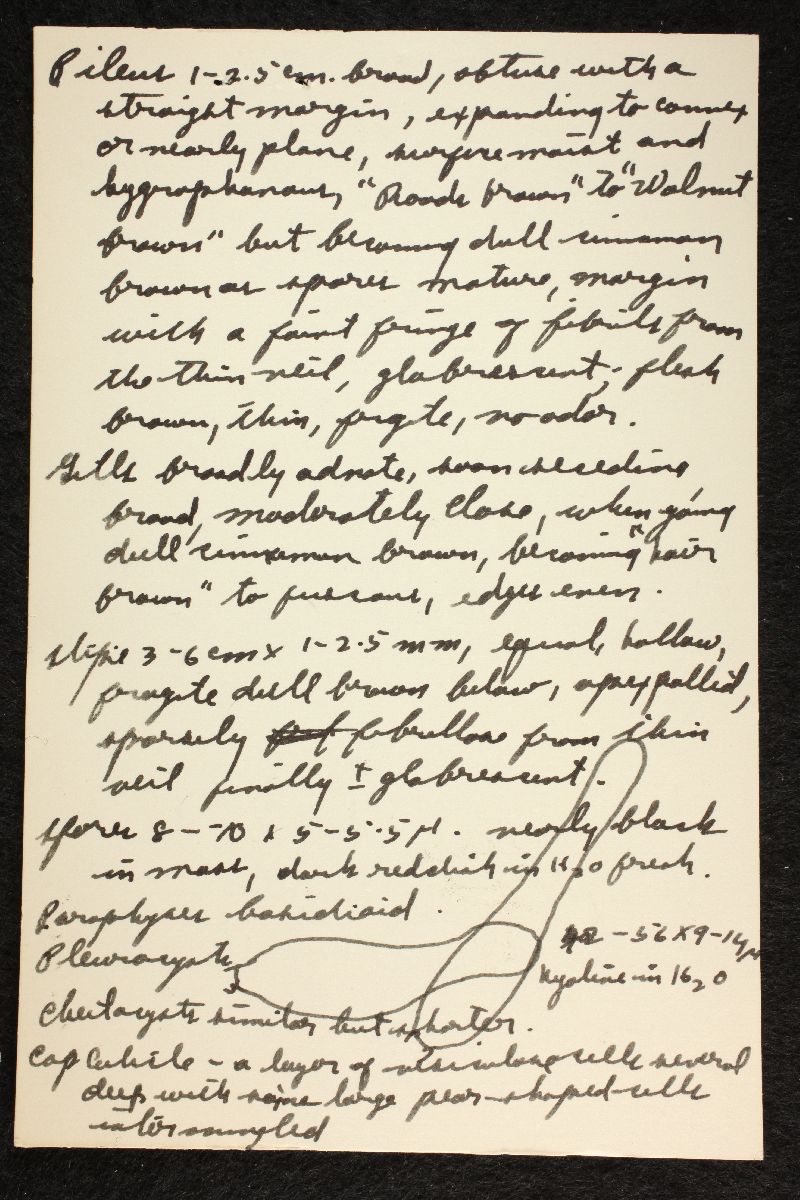 Pileus 1-2.5 cm. broad, obtuse with a
straight margin, expanding to convex
or nearly plane, surface moist and
hygrophanous, "Roods brown" to "Walnut
brown" but becoming dull cinnamon
brown as spores mature, margin
with a faint fringe of fibrils from
the thin veil, glabrescent; flesh
brown, thin, fragile, no odor.
Gills broadly adnate, soon seceding,
broad, moderately close, when young
dull cinnamon brown, becoming "hair
brown" to fuscous, edges even.
Stipe 3-6 cm x 1-2.5 mm, equal, hollow,
fragile dull brown below, apex pallid,
sparsely fibrillose from thin
veil finally ± glabrescent.
Spores 8-10 x 5-5.5 μ. nearly black
in mass, dark reddish in H2O fresh.
Paraphyses basidioid.
Pleurocysts
-56 x 9-14 μ
hyaline in H2O
Cheilocysts similar but shorter.
Cap cuticle - a layer of vesiculose cells several
deep with some large pear-shaped cells
intermingled